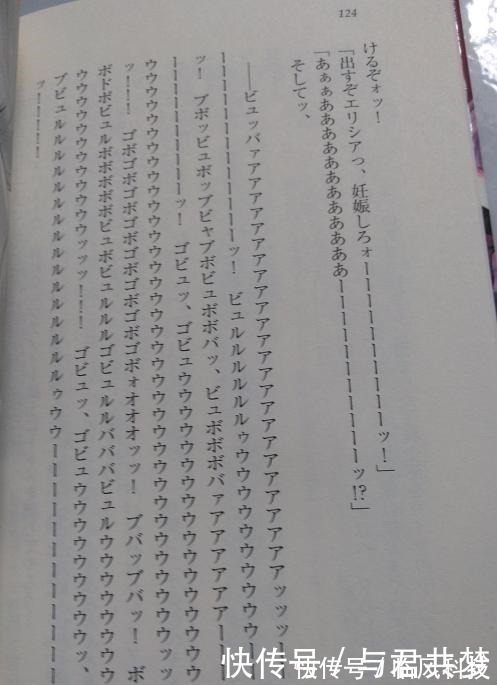 124
けるぞォッ！
「出すぞエリシアっ、妊娠しろォーーーーーーーーーーッ！」
「あぁぁあああああああああああーーーーーーーーーッ!?」
そしてッ、
――ビュッバァアアアアアアアアアアアアアアアアアアアアアアアアアッッッーー
ーーーーーーーーーーーッ！　ビュルルルルルルゥウウウウウウウウウウウ
ッ！　ブボッビュボッブビャブボビュボボバッ、ビュボボボバァアアアアアーー
ーーーーーーーーッ！　ゴビュッ、ゴビュウウウウウウウウウウウウウウ
ウウウウウウウウウウウウウウウウウウウウウウウウウウウウウウウウウッッ
ッ！！！　ゴボゴボゴボゴボゴボゴボゴボォオオオッッ！　ブバッブバッ！　ボ
ボドボビュルボボボボボビュボビュルルルゴビュルルバババビュルウウウウウウ
ウウウウウウウウウウウッッッ！！！！　ゴビュッ、ゴビュウウウウウウウッ、
ブビュルルルルルルルルルルルルルルルルゥウウーーーーーーーーーー
ッーーー！！！！
快传号 / 与君共梦